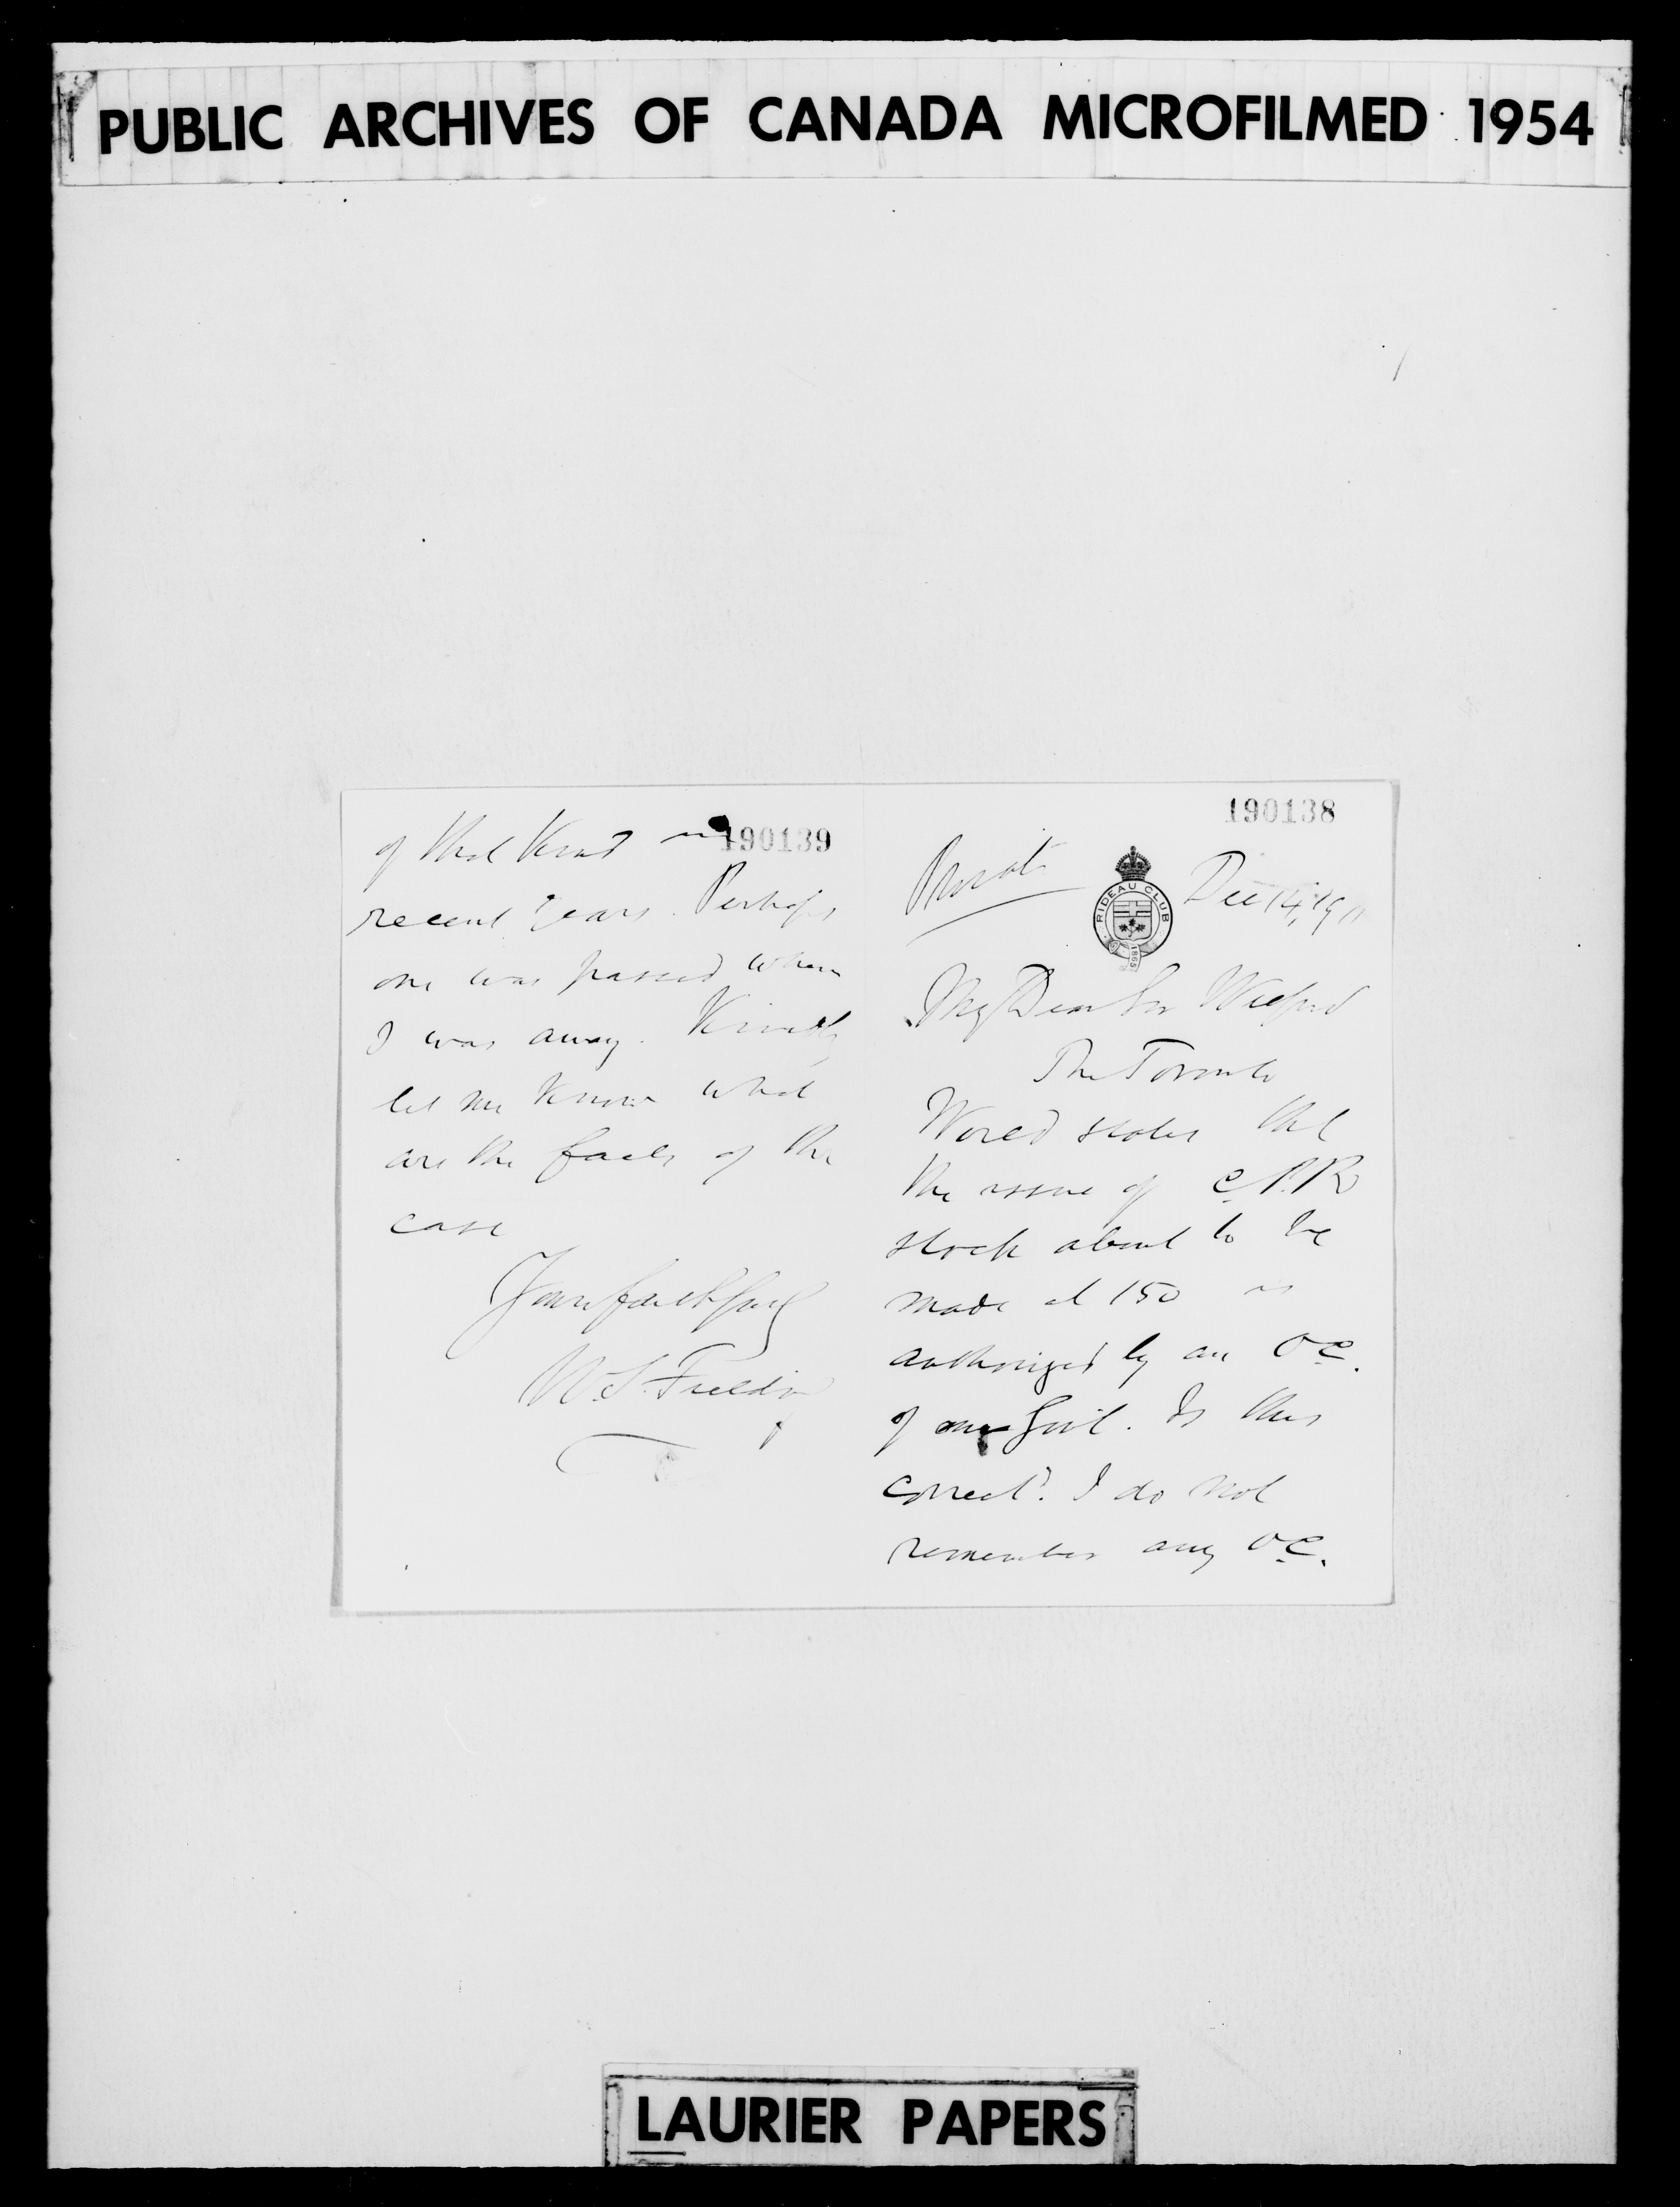 PUBLIC ARCHIVES OF CANADA MICROFILMED 1954
190138
Private
RIDEAU CLUB
1865
Dec 14, 1911
My Dear Sir Wilfrid
The Toronto
World states that
the issue of C.P.R
stock about to be
made at 150 is
authorized by an O.C.
of our Govt. Is this
correct? I do not
remember any O.C.
190139
of that kind in
recent years. Perhaps
one was passed when
I was away. Kindly
let me know what
are the facts of the
case
Yours faithfully
W.S. Fielding
LAURIER PAPERS